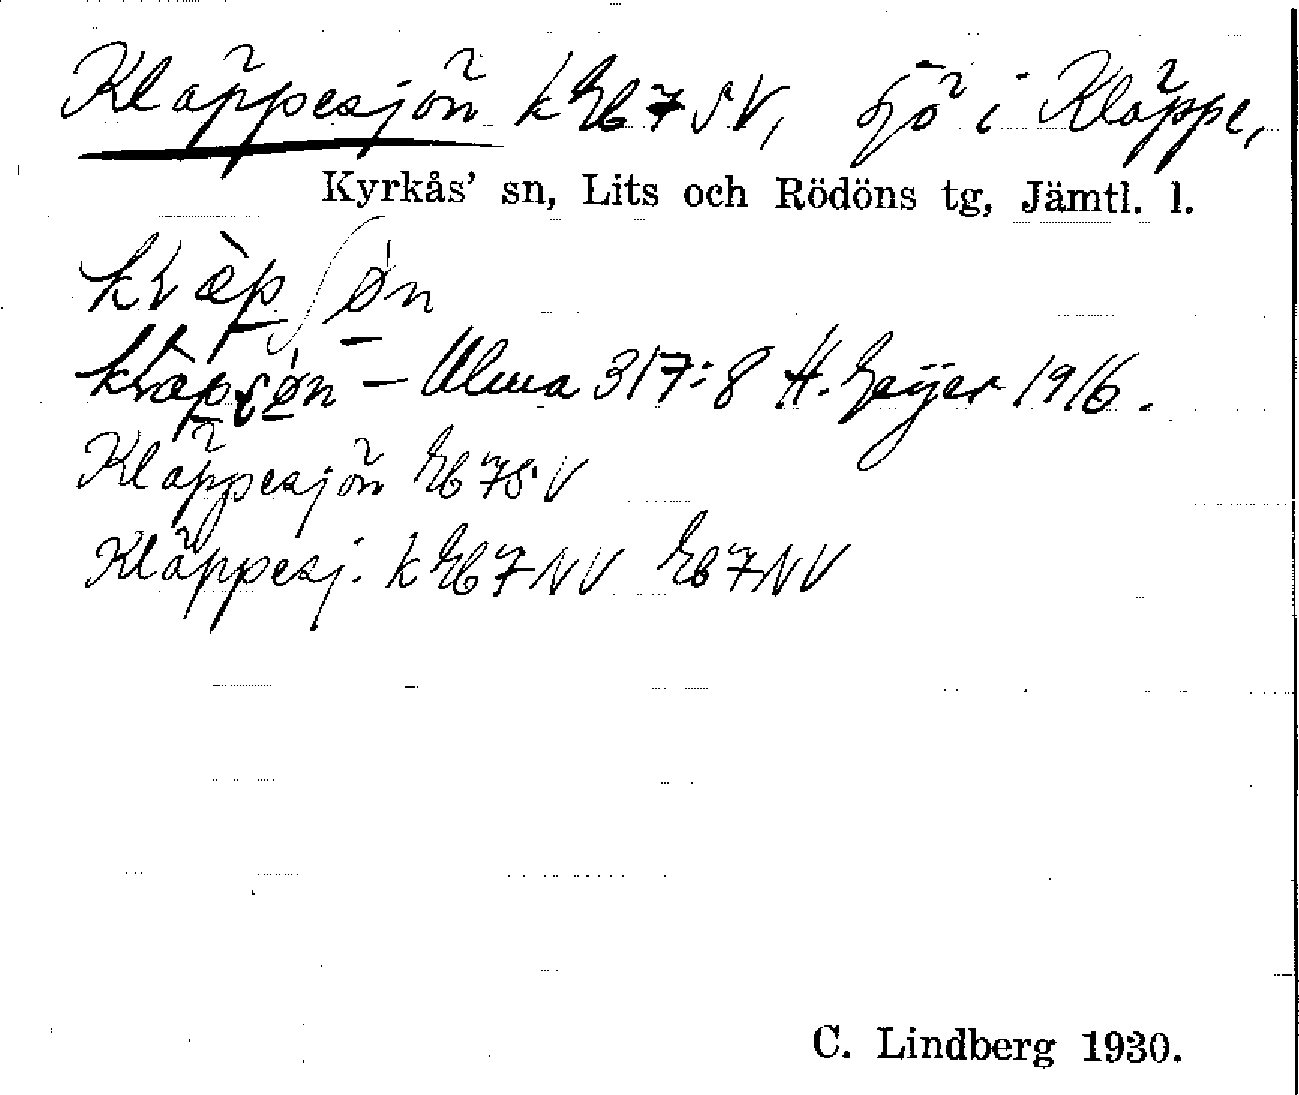 Kläppesjön k Eb 7 SV, sjö i Kläppe,
Kyrkås' sn, Lits och Rödöns tg, Jämtl. l.
— Ulma 317:8 H. Geijer 1916.
Kläppesjön Eb 7 SV
Kläppesj. k Eb 7 NV Eb 7 NV
C. Lindberg 1930.